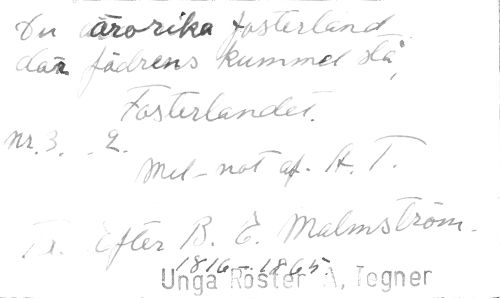 Du ärorika fosterland
där fädrens kummel stå,
Fosterlandet.
nr. 3. 2.
Mel-not af. A. T.
Tr. Efter B. E. Malmström.
1816-1865
Unga Röster A, Tegner